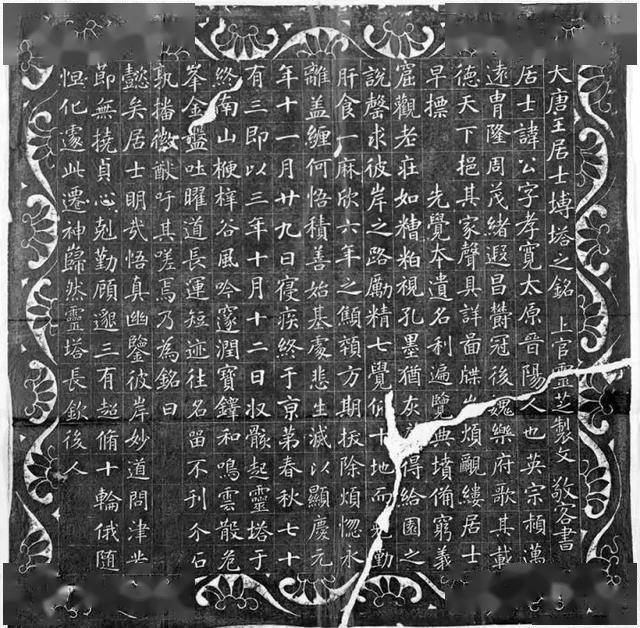 大唐王居士塼塔之銘 上官靈芝製文 敬客書
居士諱公字孝寬太原晉陽人也英宗穎邁
遠冑隆周茂緒遐昌欝冠後魏樂府歌其載
德天下挹其家聲具詳啚牒煩覼縷居士
早摽 先覺本遺名利遍覽典墳俻窮義
窟觀老莊如糟粕視孔墨猶灰得給園之
說罄求彼岸之路勵精七覺俻十地而勤
肝食一麻欣六年之顦顇方期拔除煩惚永
離盖纏何悟積善始基處悲生滅以顯慶元
年十一月廿九日寑疾終于京第春秋七十
有三即以三年十月十二日收骸起靈塔于
終南山楩梓谷風吟邃澗寶鐸和鳴雲散危
峯金盤吐曜道長運短迹往名留不刊介石
孰播徽猷吁其嗟焉乃為銘曰
懿矣居士明哉悟真幽鑒彼岸妙道問津
莭無撓貞心剋勤顧邈三有超脩十輪俄随
怛化遽此遷神巋然靈塔長欽後人